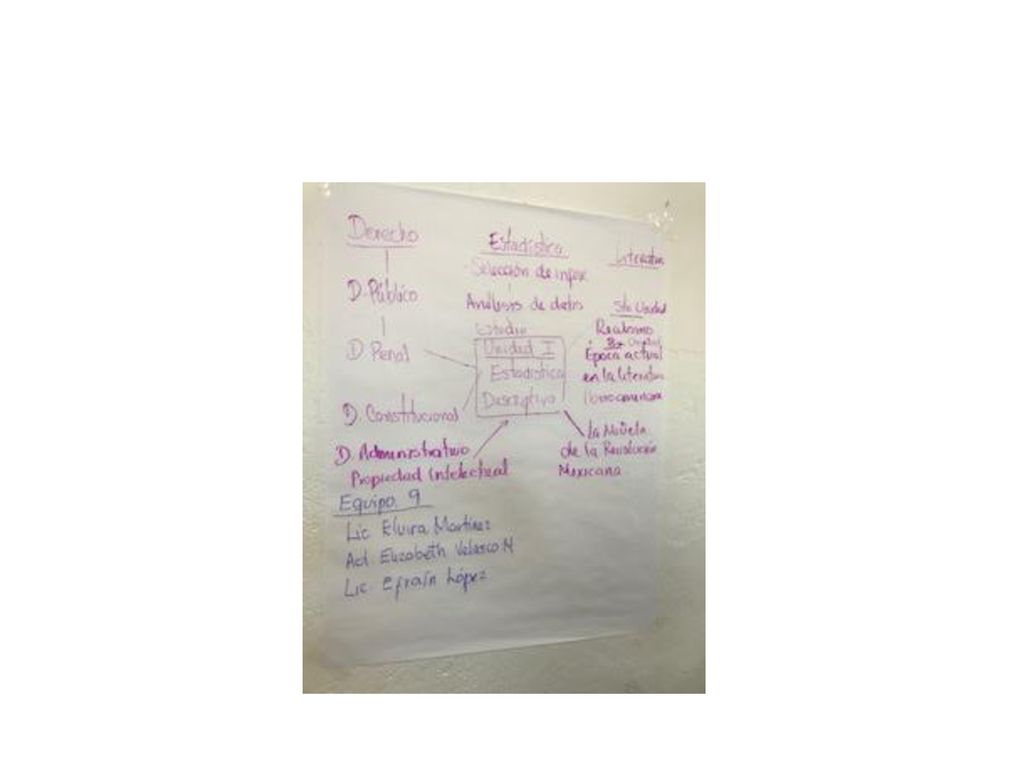 Derecho
D. Público
D Penal
D. Constitucional
D. Administrativo
Propiedad Intelectual
Estadística
Selección de infor.
Análisis de datos
Estudio
Unidad I
Estadística
Descriptiva
Literatura
5ta Unidad
Realismo
Época actual
en la literatura
Iberoamericana
La Novela
de la Revolución
Mexicana
Equipo. 9
Lic Elvira Martínez
Act. Elizabeth Velasco M
Lic. Efraín López